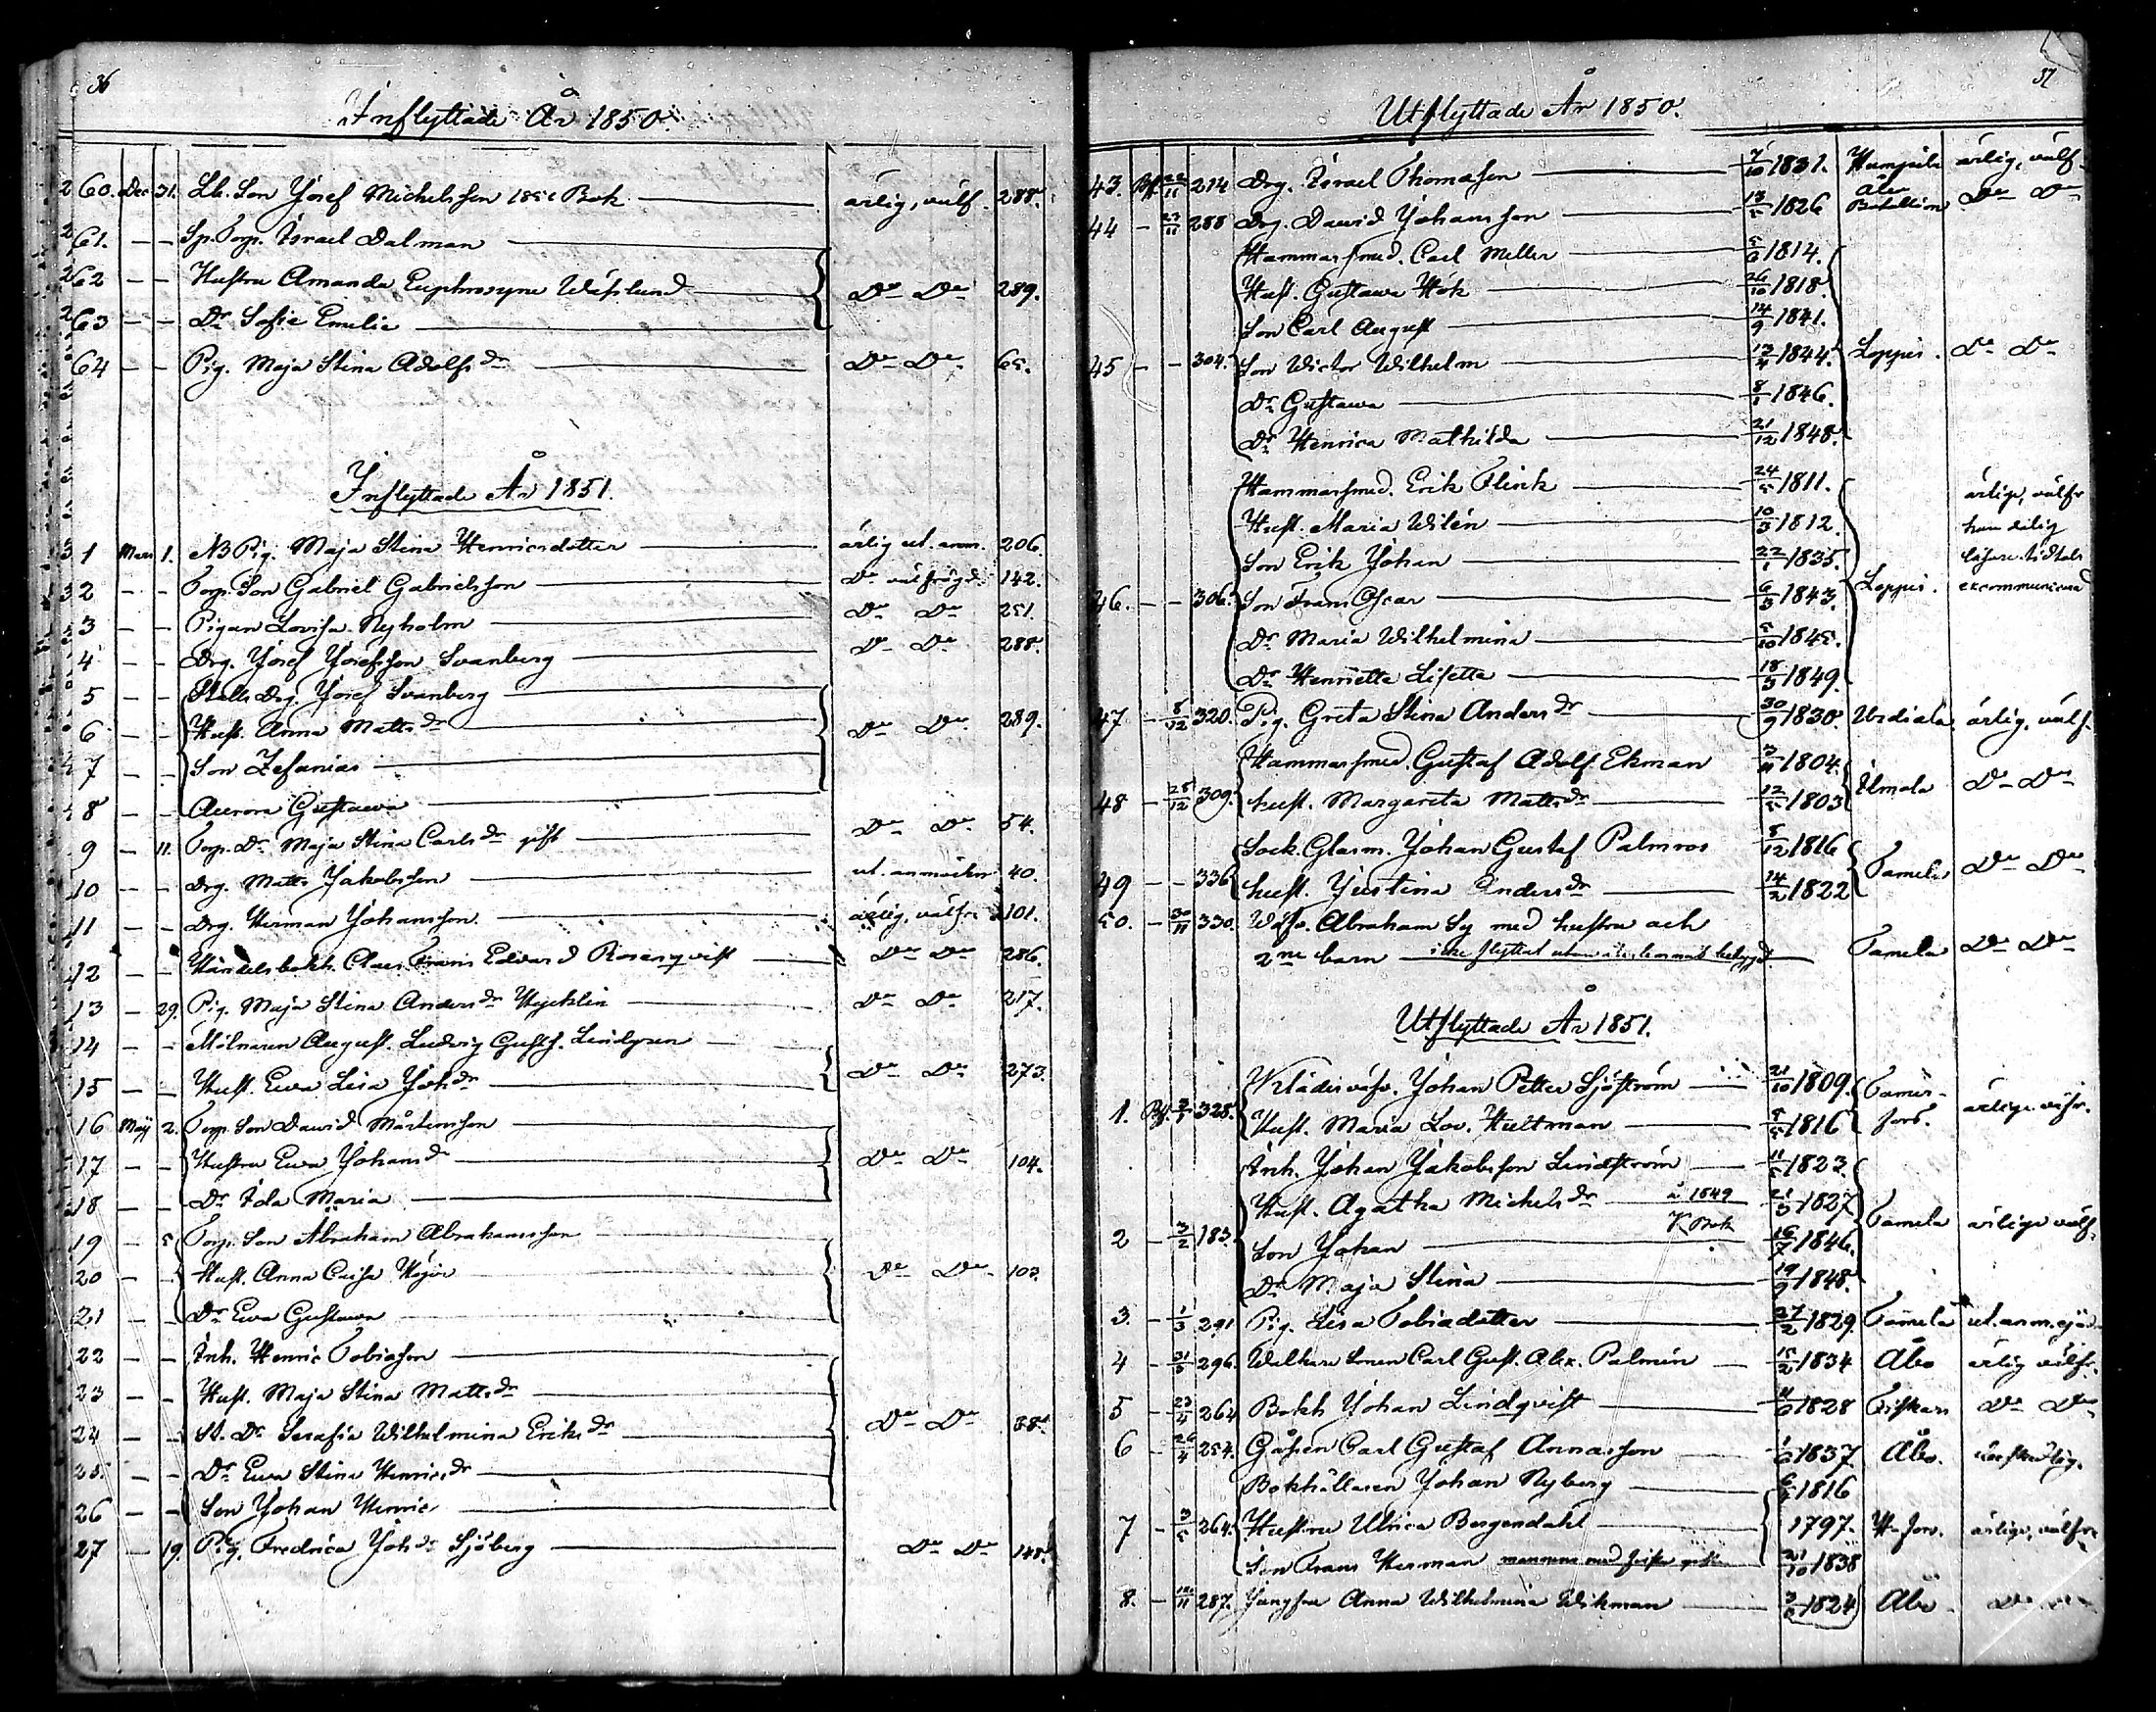 36
Inflyttade År 1850.
260. Dec 31. Lb. Son Josef Michelsson 1850 Bok ärlig, välf. 288.
261. — — Sp. Torp. Israel Dalman
262 — — Hustru Amanda Euphrosyne Wäslund Do Do 289.
263 — — Dr Sofia Emilia
64 — — Pig. Maja Stina Adolfsdr Do Do 65.
Inflyttade År 1851.
1 Mars 1. NB Pig. Maja Stina Henricsdotter ärlig ut. anm. 206.
2 — — Torp. Son Gabriel Gabrielsson Do välfrägd 142.
3 — — Pigan Lovisa Nyholm Do Do 251.
4 — — Drg. Josef Josefsson Svanberg Do Do 288.
5 — — Drg. Josef Svanberg
6 — — Hust. Anna Mattsdr Do Do 289.
7 — — Son Zefanias
8 — — Aurora Gustava
9 — 11. Torp. Dr Maja Stina Carlsdr gift Do Do 54.
10 — — Drg. Matts Jakobsson ut. anmärkn 40.
11 — — Drg. Herman Johansson ärlig, välfr. 101.
12 — — Handelsbokh. Claes Frans Edvard Rosenqvist Do Do 286.
13 — 29. Pig. Maja Stina Andersdr Hychlin Do Do 217.
14 — — Mölnaren August Ludvig Gustfs. Lindgren
15 — — Hust. Eva Lisa Johdr Do Do 273.
16 Maj 2. Torp. Son David Mårtensson
17 — — Hustru Eva Johansdr Do Do 104.
18 — — Dr Ida Maria
19 — 5 Torp. Son Abraham Abrahamsson
20 — — Hust. Anna Caisa Höjer Do Do 103.
21 — — Dr Eva Gustava
22 — — Inh. Henric Tobiasson
23 — — Hust. Maja Stina Mattsdr
24 — — St. Dr Serafia Wilhelmina Eriksdr Do Do 38.
25. — — Dr Eva Stina Henricsdr
26 — — Son Johan Henric
27 — 19. Pig. Fredrica Johdr Sjöberg Do Do 148.
37
Utflyttade År 1850.
43. Bf. 22/11 214 Drg. Israel Thomasson 7/10 1831. Humppila ärlig, välf.
44 — 27/11 288 Drg. David Johansson 13/5 1826 Åbo Batallion Do Do
Hammarsmed. Carl Meller 5/6 1814.
Hust. Gustava Hök 26/10 1818.
Son Carl August 14/9 1841.
45 — — 304. Son Victor Wilhelm 13/4 1844. Loppis. Do Do
Dr Gustava 8/1 1846.
Dr Henrica Mathilda 21/12 1848.
Hammarsmed. Erik Flink 24/5 1811. ärlige, välfr
Hust. Maria Wilén 10/3 1812.
Son Erik Johan 22/1 1835.
46. — — 306. Son Frans Oscar 6/3 1843. Loppis.
Dr Maria Wilhelmina 5/10 1845.
Dr Henrietta Lisetta 18/3 1849.
47 — 8/12 320. Pig. Greta Stina Andersdr 30/9 1830. Urdiala ärlig, välf.
Hammarsmed. Gustaf Adolf Ekman 3/11 1804.
48 — 28/12 309. Hust. Margareta Mattsdr 12/5 1803 Ulmala Do Do
Sock. Glasm. Johan Gustaf Palmros 8/12 1816
49 — — 336 Hust. Justina Andersdr 14/2 1822 Tamela Do Do
50. — 30/11 330. Abraham Sy med hustru och
2ne barn icke flyttat utan återlemnat betyget Tamela Do Do
Utflyttade År 1851.
Klädesväfv. Johan Petter Sjöström 21/10 1809. Tamer-
1. Bf. 2/1 328. Hust. Maria Lov. Hultman 8/5 1816 fors. ärlige. välfr.
Inh. Johan Jakobsson Lindström 11/5 1823.
Hust. Agatha Michelsdr å 1849 21/3 1827
2 — 3/2 183. Son Johan K Bok 16/7 1846. Tamela ärlige välf.
Dr Maja Stina 19/9 1848
3. — 1/3 291 Pig. Lisa Tobiadotter 27/2 1829. Tamela ut. anm.
4 — 31/3 296. Carl Gust. Alex. Palmén 15/2 1834 Åbo ärlig välfr.
5 — 23/4 264 Bokh Johan Lindqvist 1828 Fiskars Do Do
6 — 26/4 254. Gossen Carl Gustaf Annasson 1837. Åbo.
Bokhållaren Johan Nyberg 1816
7 — 3/5 264. Hustru Ulrica Bergendahl 1797. H-fors. ärlige, välfr.
Son Frans Herman 21/10 1838
8. — 287. Jungfru Anna Wilhelmina Wikman 1824 Åbo Do